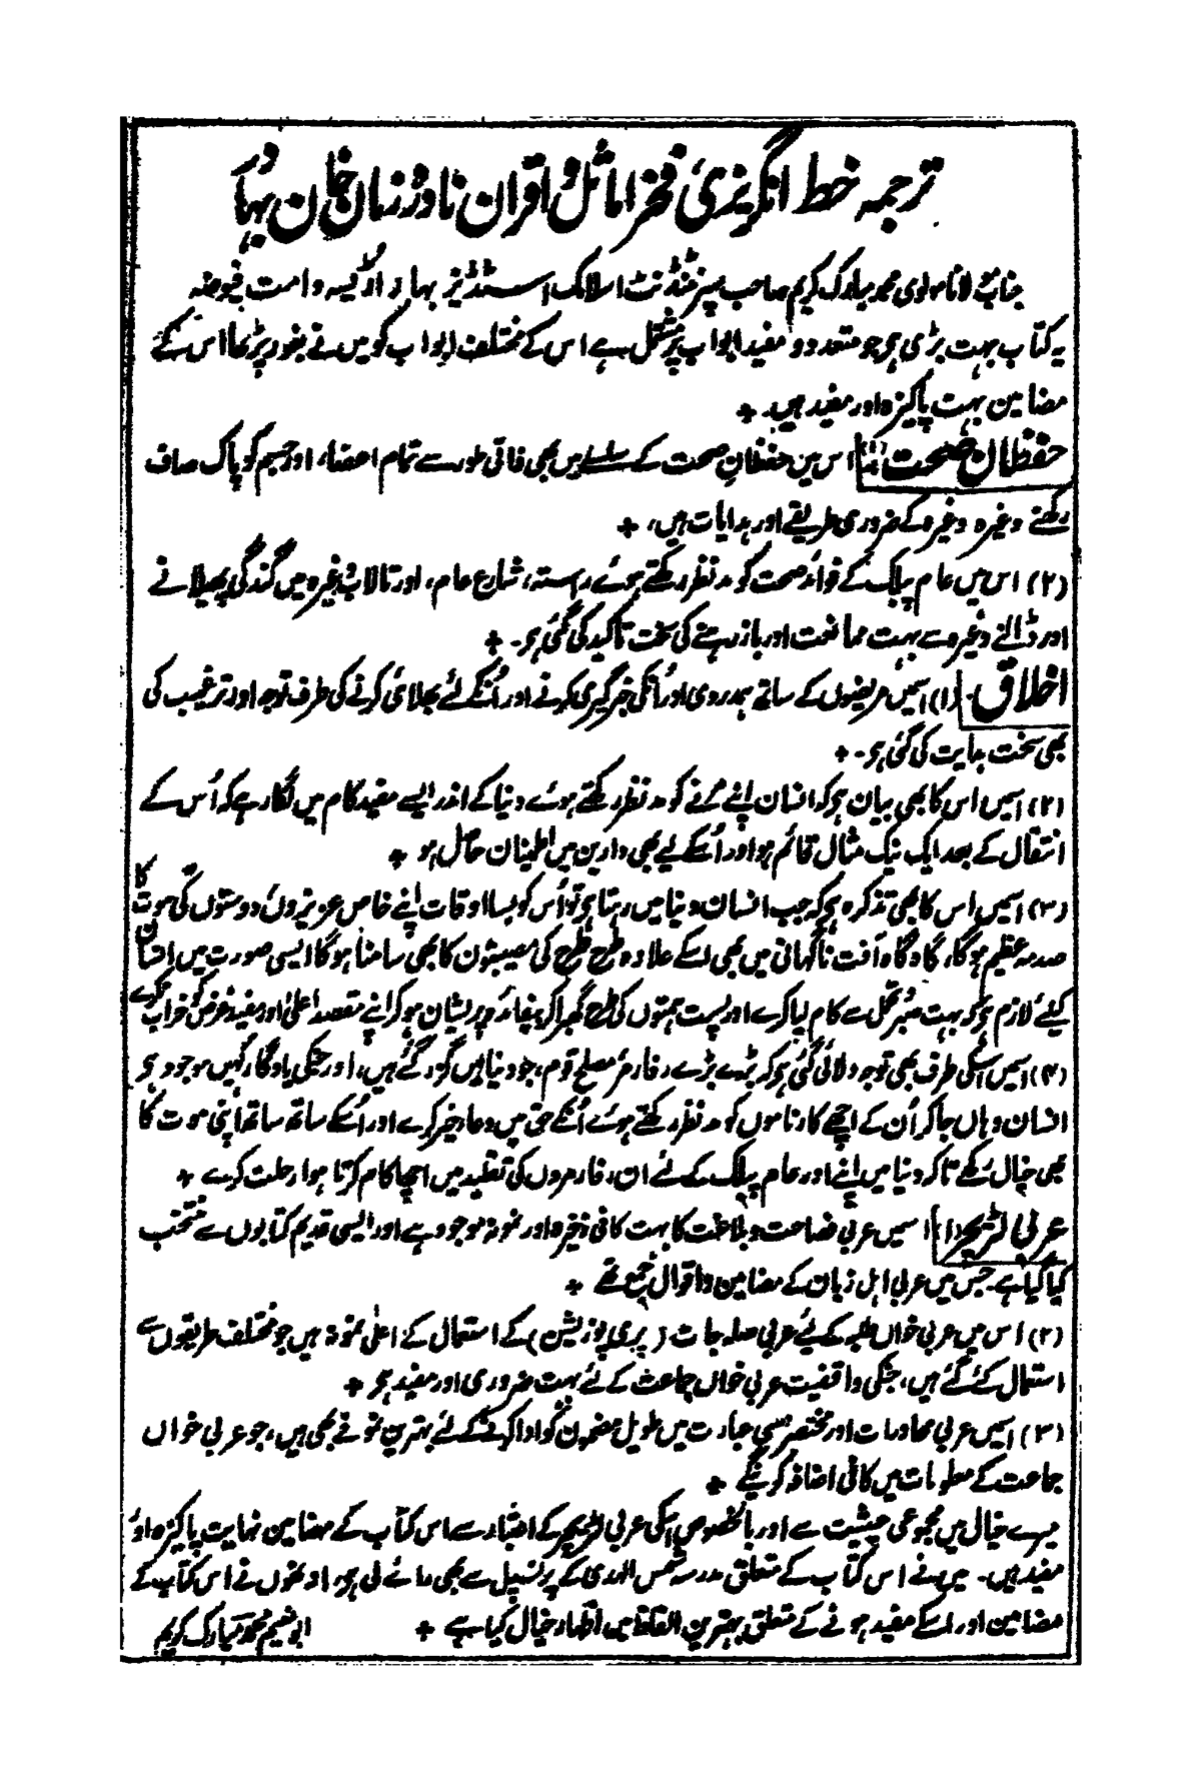 ترجمہ خط انگریزی فخر اماثل و اقران نادر زمان خان بہادر
جناب مولانا مولوی محمد مبارک کریم صاحب سپرنٹنڈنٹ اسلامک اسٹڈیز بہار اڑیسہ دامت فیوضہ
یہ کتاب بہت بڑی ہی جو متعدد و مفید ابواب پر مشتمل ہے اس کے مختلف ابواب کو میں نے بغور پڑھا اس کے
مضامین بہت پاکیزہ اور مفید ہیں۔ +
حفظان صحت (۱) اس میں حفظانِ صحت کے سلسلے میں بھی ذاتی طور سے تمام اعضاء، اور جسم کو پاک صاف
رکھنے وغیرہ وغیرہ کے ضروری طریقے اور ہدایات ہیں، +
(۲) اس میں عام پبلک کے فوائد صحت کو مد نظر رکھتے ہوئے راستہ، شارع عام، اور تالاب وغیرہ میں گندگی پھیلانے
اور ڈالنے وغیرہ سے بہت ممانعت اور باز رہنے کی سخت تاکید کی گئی ہی۔ +
اخلاق (۱) اسمیں مریضوں کے ساتھ ہمدردی اور اُنکی خبرگیری کرنے اور اُنکے لئے بھلائی کرنے کی طرف توجہ اور ترغیب کی
بھی سخت ہدایت کی گئی ہی۔ +
(۲) اسمیں اس کا بھی بیان ہی کہ انسان اپنے مرنے کو مد نظر رکھتے ہوئے دنیا کے اندر ایسے مفید کام میں لگا رہے کہ اُس کے
انتقال کے بعد ایک نیک مثال قائم ہو اور اُسکے لیے بھی دارین میں اطمینان حاصل ہو +
(۳) اسمیں اس کا بھی تذکرہ ہی کہ جب انسان دنیا میں رہتا ہی تو اُس کو بسا اوقات اپنے خاص عزیزوں، دوستوں کی موت کا
صدمہ عظیم ہوگا، گاہ گاہ آفت ناگہانی میں بھی اسکے علاوہ طرح طرح کی مصیبتوں کا بھی سامنا ہوگا ایسی صورت میں انسان
کیلئے لازم ہی کہ بہت صبر و تحمل سے کام لیا کرے اور پست ہمتوں کی طرح گھبرا کر بیفائدہ پریشان ہوکر اپنے مقصد اعلیٰ اور مفید غرض کو خراب نکرے
(۴) اسمیں اسکی طرف بھی توجہ دلائی گئی ہی کہ بڑے بڑے رفارمر مصلح قوم، جو دنیا میں گزر گئے ہیں، اور جنکی یادگار کہیں موجود ہو
انسان وہاں جا کر اُن کے اچھے کارناموں کو مد نظر رکھتے ہوئے اُنکے حق میں دعاء خیر کرے اور اُسکے ساتھ ساتھ اپنی موت کا
بھی خیال رکھے تاکہ دنیا میں اپنے اور عام پبلک کے لئے ان رفارمروں کی تقلید میں اچھا کام کرتا ہوا رحلت کرے +
عربی لٹریچر (۱) اسمیں عربی فصاحت و بلاغت کا بہت کافی ذخیرہ اور نمونہ موجود ہے اور ایسی قدیم کتابوں سے منتخب
کیا گیا ہے جس میں عربی اہل زبان کے مضامین و اقوال جمع تھے +
(۲) اس میں عربی خواں طلبہ کے لئے عربی صلہ جات (پری پوزیشن) کے استعمال کے اعلیٰ نمونہ ہیں جو مختلف طریقوں سے
استعمال کئے گئے ہیں، جنکی واقفیت عربی خواں جماعت کے لئے بہت ضروری اور مفید ہی +
(۳) اسمیں عربی محاورات اور مختصر سی عبارت میں طویل مضمون کو ادا کرنے کے لئے بہترین نمونے بھی ہیں، جو عربی خواں
جماعت کے معلومات میں کافی اضافہ کرینگے +
میرے خیال میں مجموعی حیثیت سے اور بالخصوص اسکی عربی لٹریچر کے اعتبار سے اس کتاب کے مضامین نہایت پاکیزہ اور
مفید ہیں۔ میں نے اس کتاب کے متعلق مدرسہ شمس الہدی کے پرنسپل سے بھی رائے لی ہی، اونھوں نے اس کتاب کے
مضامین اور اسکے مفید ہونے کے متعلق بہترین الفاظ میں اظہار خیال کیا ہے + ابو نعیم محمد مبارک کریم